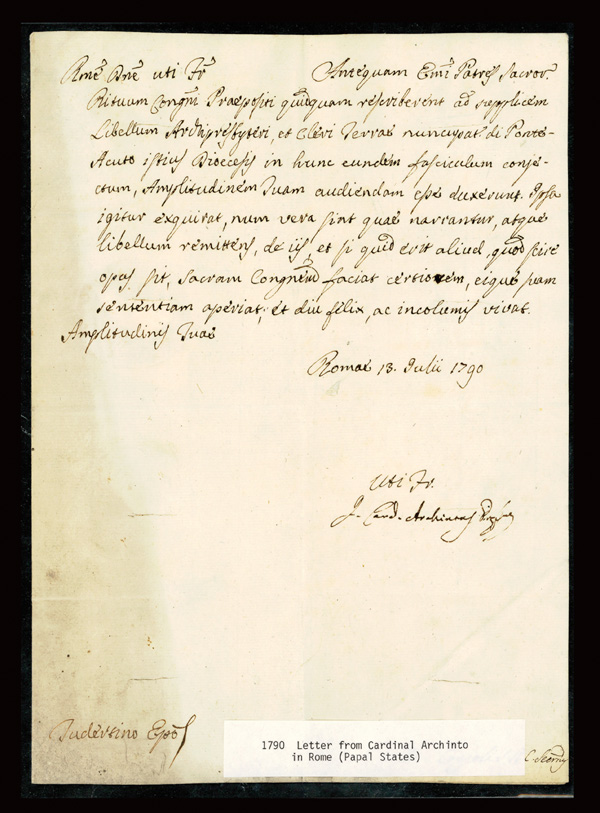 Rmē Dnē uti Fr̄ Antequam Emī Patres Sacror.
Rituum Congñi Praepositi quidquam rescriberent ad supplicem
Libellum Archipresbyteri, et Cleri Terrae nuncupat. di Ponte-
Acuto istius Dioecesis in hunc eundem fasciculum conje-
ctum, Amplitudinem Tuam audiendam esse duxerunt. Ipsa
igitur exquirat, num vera sint quae narrantur, atque
libellum remittens, de iis, et si quid erit aliud, quod scire
opus sit, Sacram Congnem faciat certiorem, eique suam
sententiam aperiat; et diu felix, ac incolumis vivat.
Amplitudinis Tuae
Romae 13. Julii 1790
Uti Fr.
J. Card. Archintus
Tudertino Epō
1790 Letter from Cardinal Archinto
in Rome (Papal States)